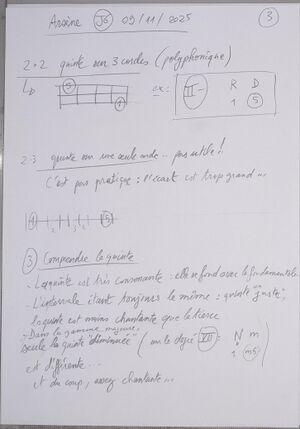 Arsène J6 09/11/2025 3
2.2 quinte sur 3 cordes (polyphonique)
LD 5 1 ex: II- R D
1 5
2.3 quinte sur une seule corde... pas utile!!
C'est pas pratique: l'écart est trop grand...
1 2 3 4 5
3 Comprendre la quinte
- La quinte est très consonante: elle se fond avec la fondamentale
- L'intervalle étant toujours le même: quinte "juste",
la quinte est moins chantante que la tierce
- Dans la gamme majeure,
seule la quinte "diminuée" (sur le degré VII: N m
1 m5)
est différente...
et du coup, assez chantante...